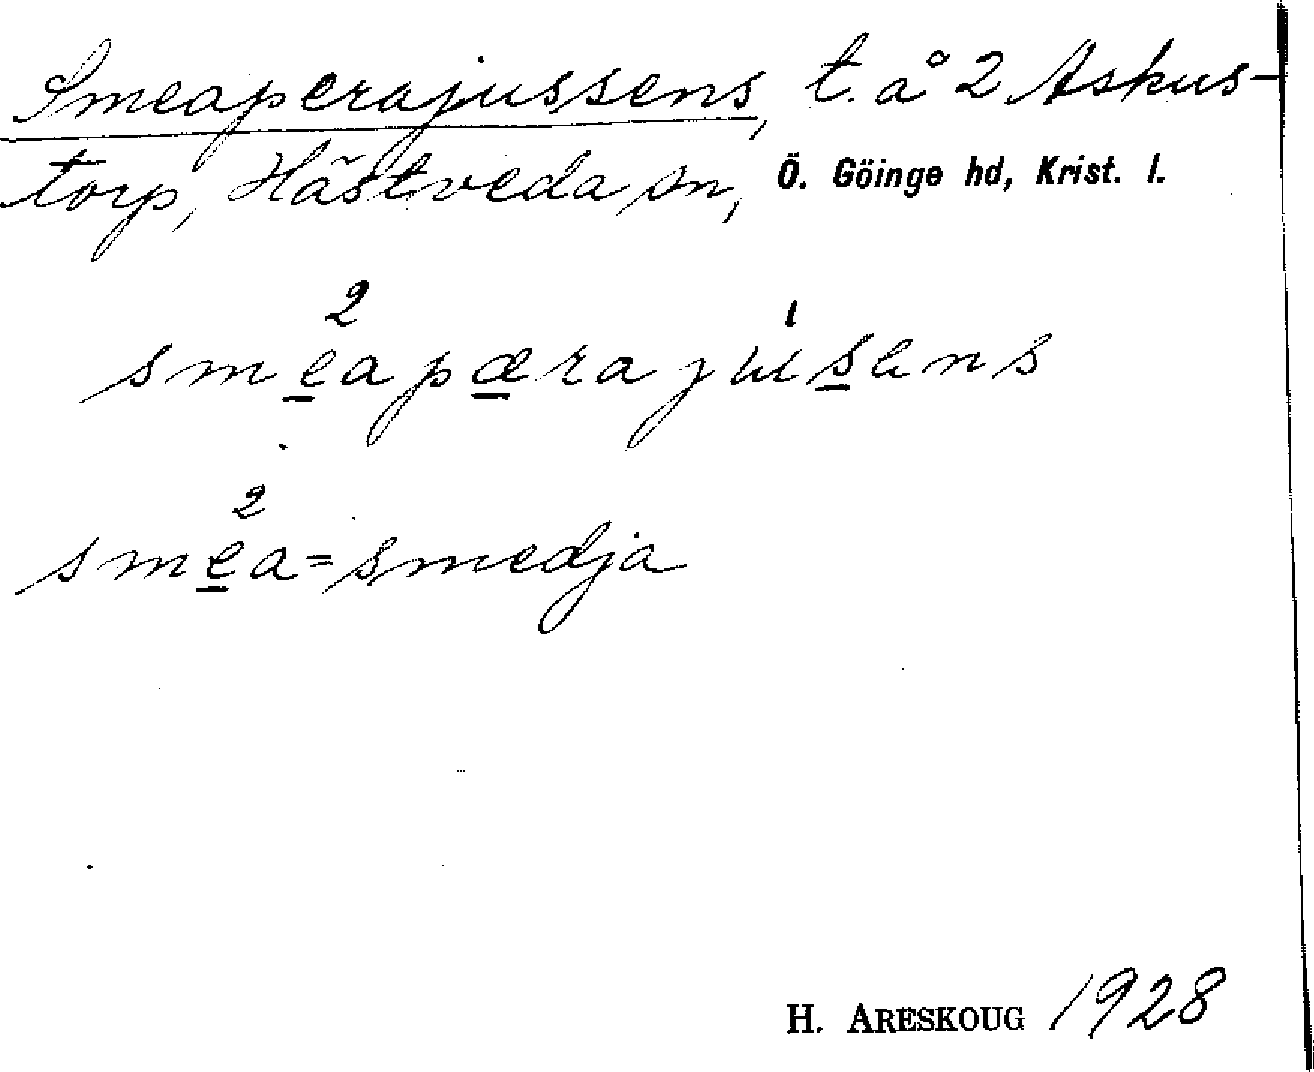 Smeaperajussens, t. å 2 Askus-
torp, Hästveda sn, Ö. Göinge hd, Krist. l.
2 1
smeapærajusens
2
smea=smedja
H. ARESKOUG 1928